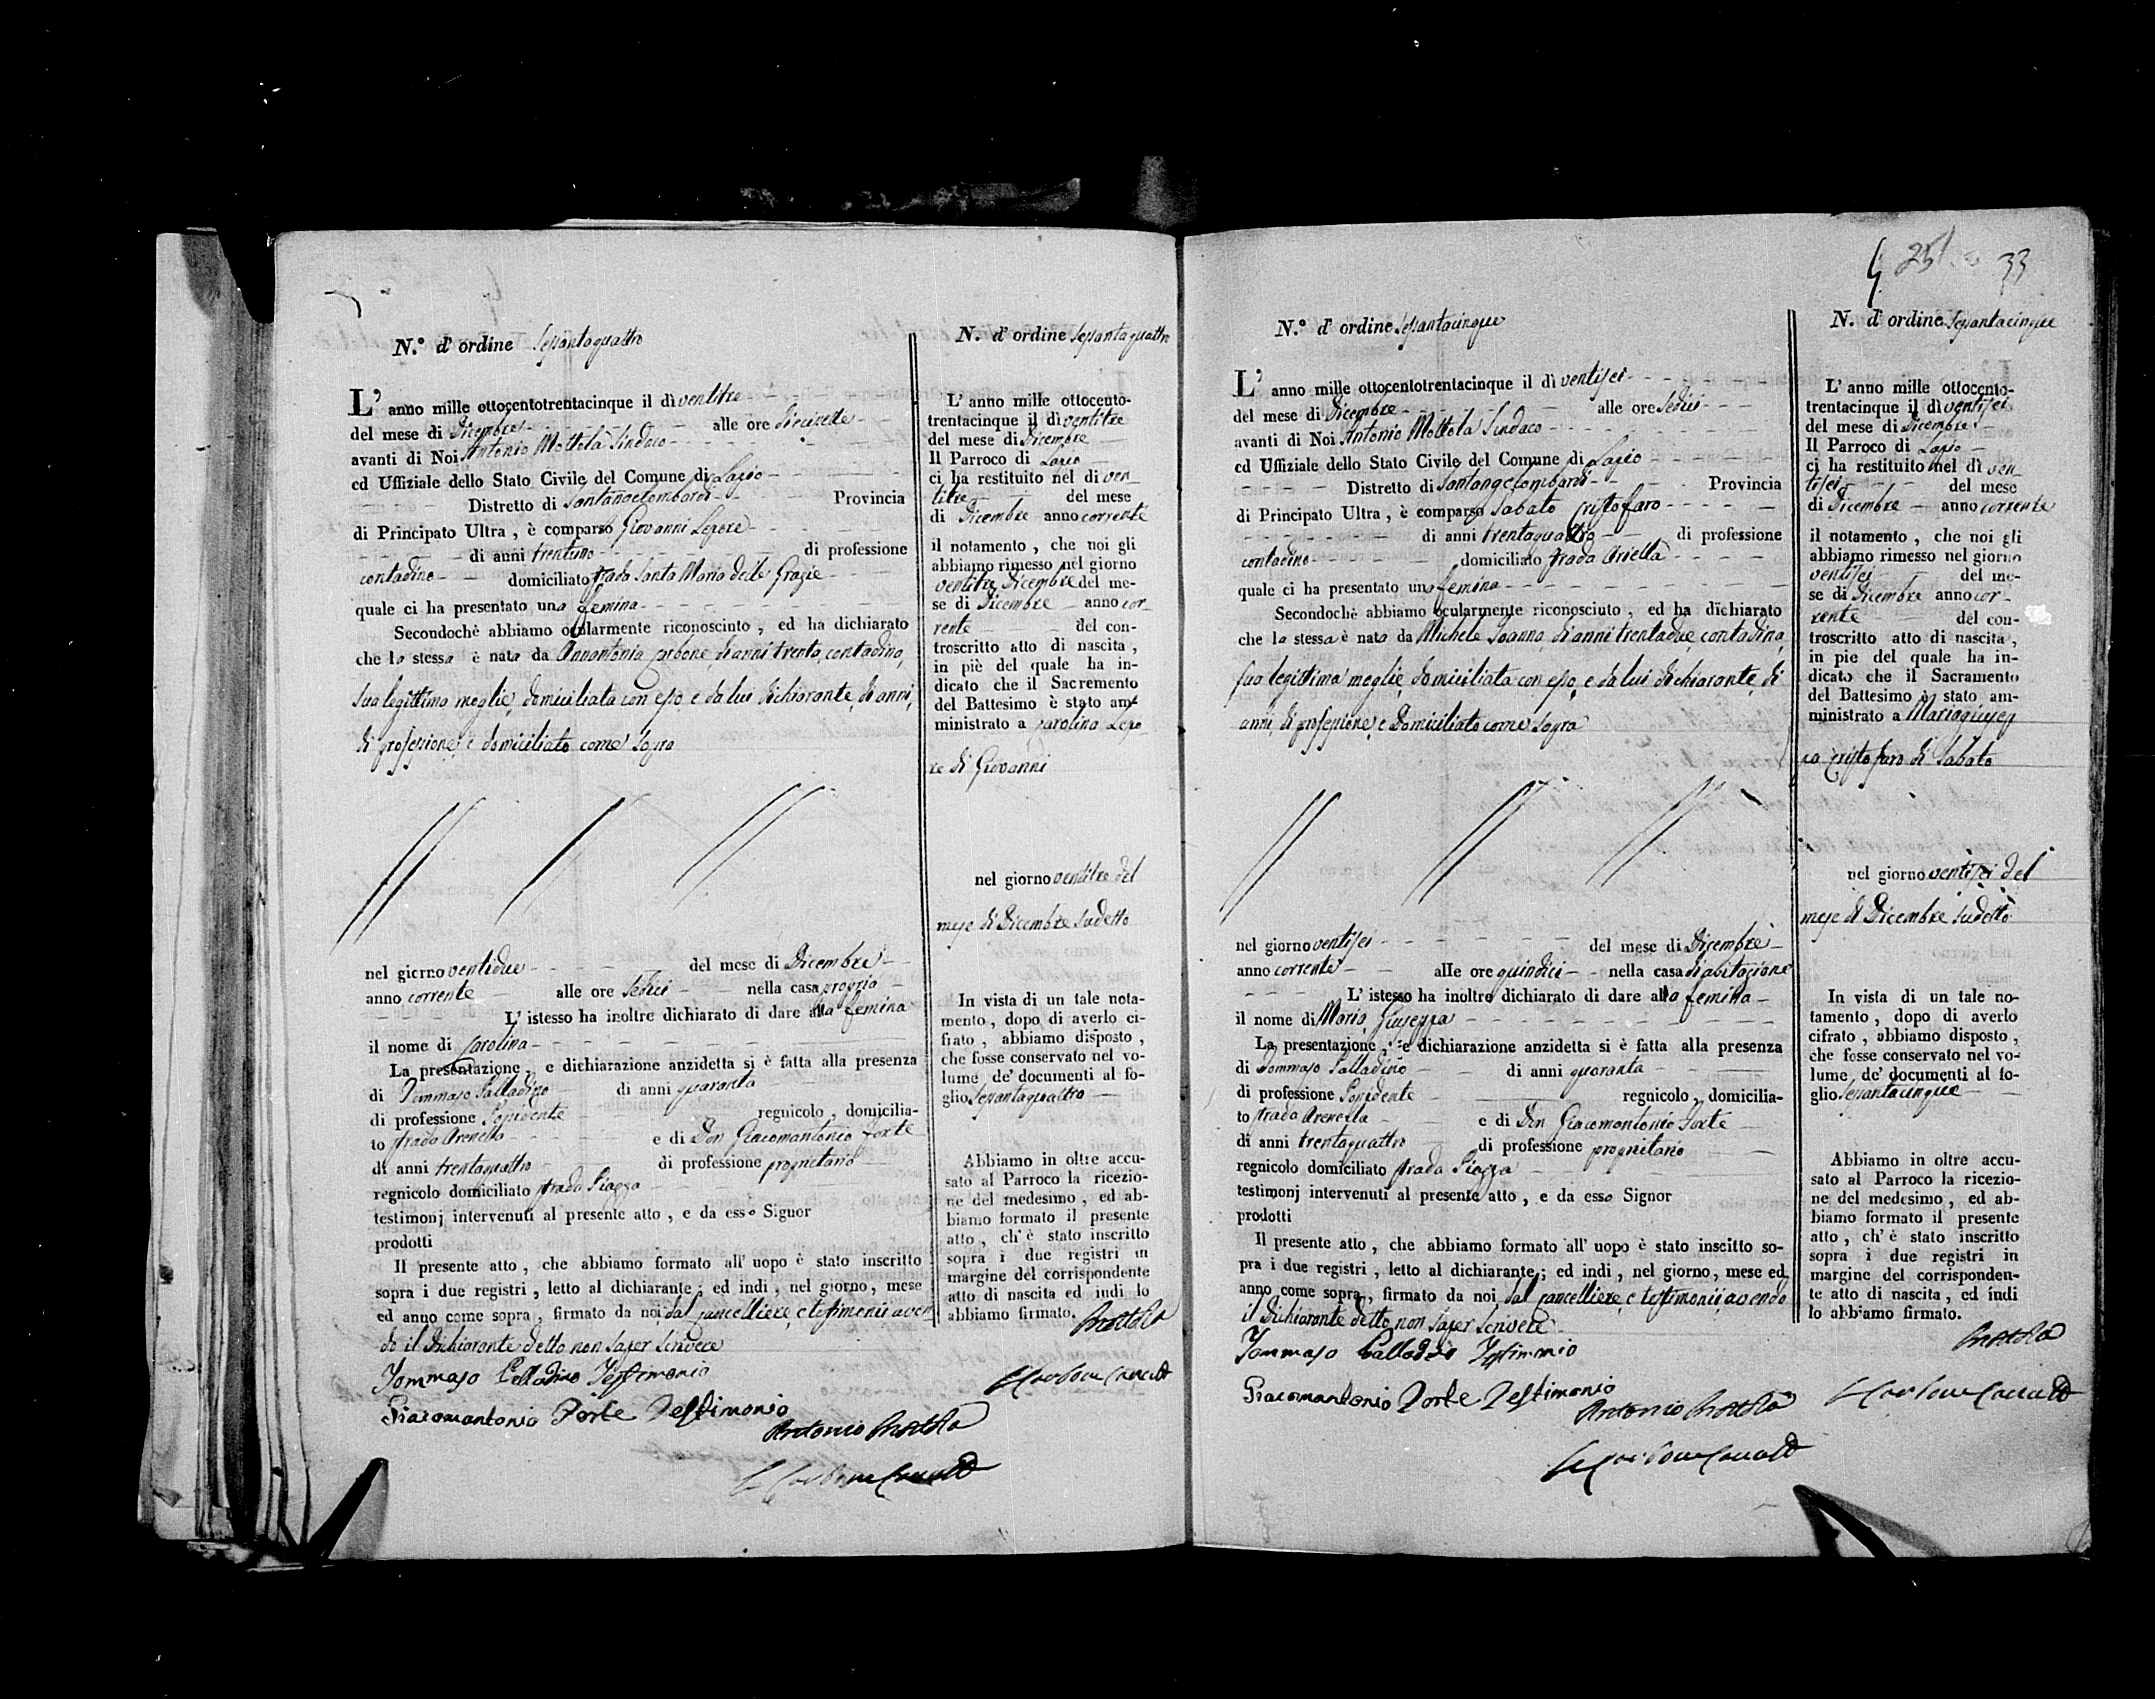 N.° d' ordine Sessantaquattro
L' anno mille ottocentotrentacinque il dì ventitre
del mese di Dicembre alle ore diecisette
avanti di Noi Antonio Mottola Sindaco
ed Uffiziale dello Stato Civile del Comune di Lapio
Distretto di Santangelombardi Provincia
di Principato Ultra, è comparso Giovanni Lepore
di anni trentuno di professione
contadino domiciliato strada Santa Maria delle Grazie
quale ci ha presentato una femina
Secondochè abbiamo ocularmente riconosciuto, ed ha dichiarato
che la stessa è nata da Annantonia Carbone, di anni trenta, contadina,
sua legittima moglie, domiciliata con esso, e da lui dichiarante, di anni,
di professione, e domiciliato come sopra
nel giorno ventidue del mese di Dicembre
anno corrente alle ore sedici nella casa propria
L' istesso ha inoltre dichiarato di dare alla femina
il nome di Carolina
La presentazione, e dichiarazione anzidetta si è fatta alla presenza
di Tommaso Palladino di anni quaranta
di professione Possidente regnicolo, domicilia-
to strada Arenella e di Don Giacomantonio Forte
di anni trentaquattro di professione proprietario
regnicolo domiciliato strada Piazza
testimonj intervenuti al presente atto, e da esso Signor
prodotti
Il presente atto, che abbiamo formato all' uopo è stato inscritto
sopra i due registri, letto al dichiarante; ed indi, nel giorno, mese
ed anno come sopra, firmato da noi dal cancelliere, e testimonii aven
do il dichiarante detto non saper scrivere
Tommaso Palladino Testimonio
Giacomantonio Forte Testimonio
Antonio Mottola
N. d' ordine Sessantaquattro
L' anno mille ottocento-
trentacinque il dì ventitre
del mese di Dicembre
Il Parroco di Lapio
ci ha restituito nel dì ven-
titre del mese
di Dicembre anno corrente
il notamento, che noi gli
abbiamo rimesso nel giorno
ventitre Dicembre del me-
se di Dicembre anno cor-
rente del con-
troscritto atto di nascita,
in piè del quale ha in-
dicato che il Sacremento
del Battesimo è stato am-
ministrato a Carolina Lepo
re di Giovanni
nel giorno ventitre del
mese di Dicembre sudetto
In vista di un tale nota-
mento, dopo di averlo ci-
frato, abbiamo disposto,
che fosse conservato nel vo-
lume de' documenti al fo-
glio Sessantaquattro
Abbiamo in oltre accu-
sato al Parroco la ricezio-
ne del medesimo, ed ab-
biamo formato il presente
atto, ch' è stato inscritto
sopra i due registri in
margine del corrispondente
atto di nascita ed indi lo
abbiamo firmato.
Mottola
25 33
N.° d' ordine Sessantacinque
L' anno mille ottocentotrentacinque il dì ventisei
del mese di Dicembre alle ore Sedici
avanti di Noi Antonio Mottola Sindaco
ed Uffiziale dello Stato Civile del Comune di Lapio
Distretto di Santangelombardi Provincia
di Principato Ultra, è comparso Sabato Cristofaro
di anni trentaquattro di professione
contadino domiciliato strada Ariella
quale ci ha presentato una femina
Secondochè abbiamo ocularmente riconosciuto, ed ha dichiarato
che la stessa è nata da Michela Joanna, di anni trentadue, contadina,
sua legittima moglie, domiciliata con esso, e da lui dichiarante, di
anni, di professione, e domiciliato come sopra
nel giorno ventisei del mese di Dicembre
anno corrente alle ore quindici nella casa di abitazione
L' istesso ha inoltre dichiarato di dare alla femina
il nome di Maria Giuseppa
La presentazione, e dichiarazione anzidetta si è fatta alla presenza
di Tommaso Palladino di anni quaranta
di professione Possidente regnicolo, domicilia-
to strada Arenella e di Don Giacomantonio Forte
di anni trentaquattro di professione proprietario
regnicolo domiciliato strada Piazza
testimonj intervenuti al presente atto, e da esso Signor
prodotti
Il presente atto, che abbiamo formato all' uopo è stato inscitto so-
pra i due registri, letto al dichiarante; ed indi, nel giorno, mese ed
anno come sopra, firmato da noi dal cancelliere, e testimonii, avendo
il dichiarante detto non saper scrivere
Tommaso Palladino Testimonio
Giacomantonio Forte Testimonio
Antonio Mottola
N. d' ordine Sessantacinque
L' anno mille ottocento-
trentacinque il dì ventisei
del mese di Dicembre
Il Parroco di Lapio
ci ha restituito nel dì ven-
tisei del mese
di Dicembre anno corrente
il notamento, che noi gli
abbiamo rimesso nel giorno
ventisei del me-
se di Dicembre anno cor-
rente del con-
troscritto atto di nascita,
in pie del quale ha in-
dicato che il Sacramento
del Battesimo è stato am-
ministrato a Mariagiusep
pa Cristofaro di Sabato
nel giorno ventisei del
mese di Dicembre sudetto
In vista di un tale no-
tamento, dopo di averlo
cifrato, abbiamo disposto,
che fosse conservato nel vo-
lume de' documenti al fo-
glio Sessantacinque
Abbiamo in oltre accu-
sato al Parroco la ricezio-
ne del medesimo, ed ab-
biamo formato il presente
atto, ch' è stato inscritto
sopra i due registri in
margine del corrisponden-
te atto di nascita, ed indi
lo abbiamo firmato.
Mottola